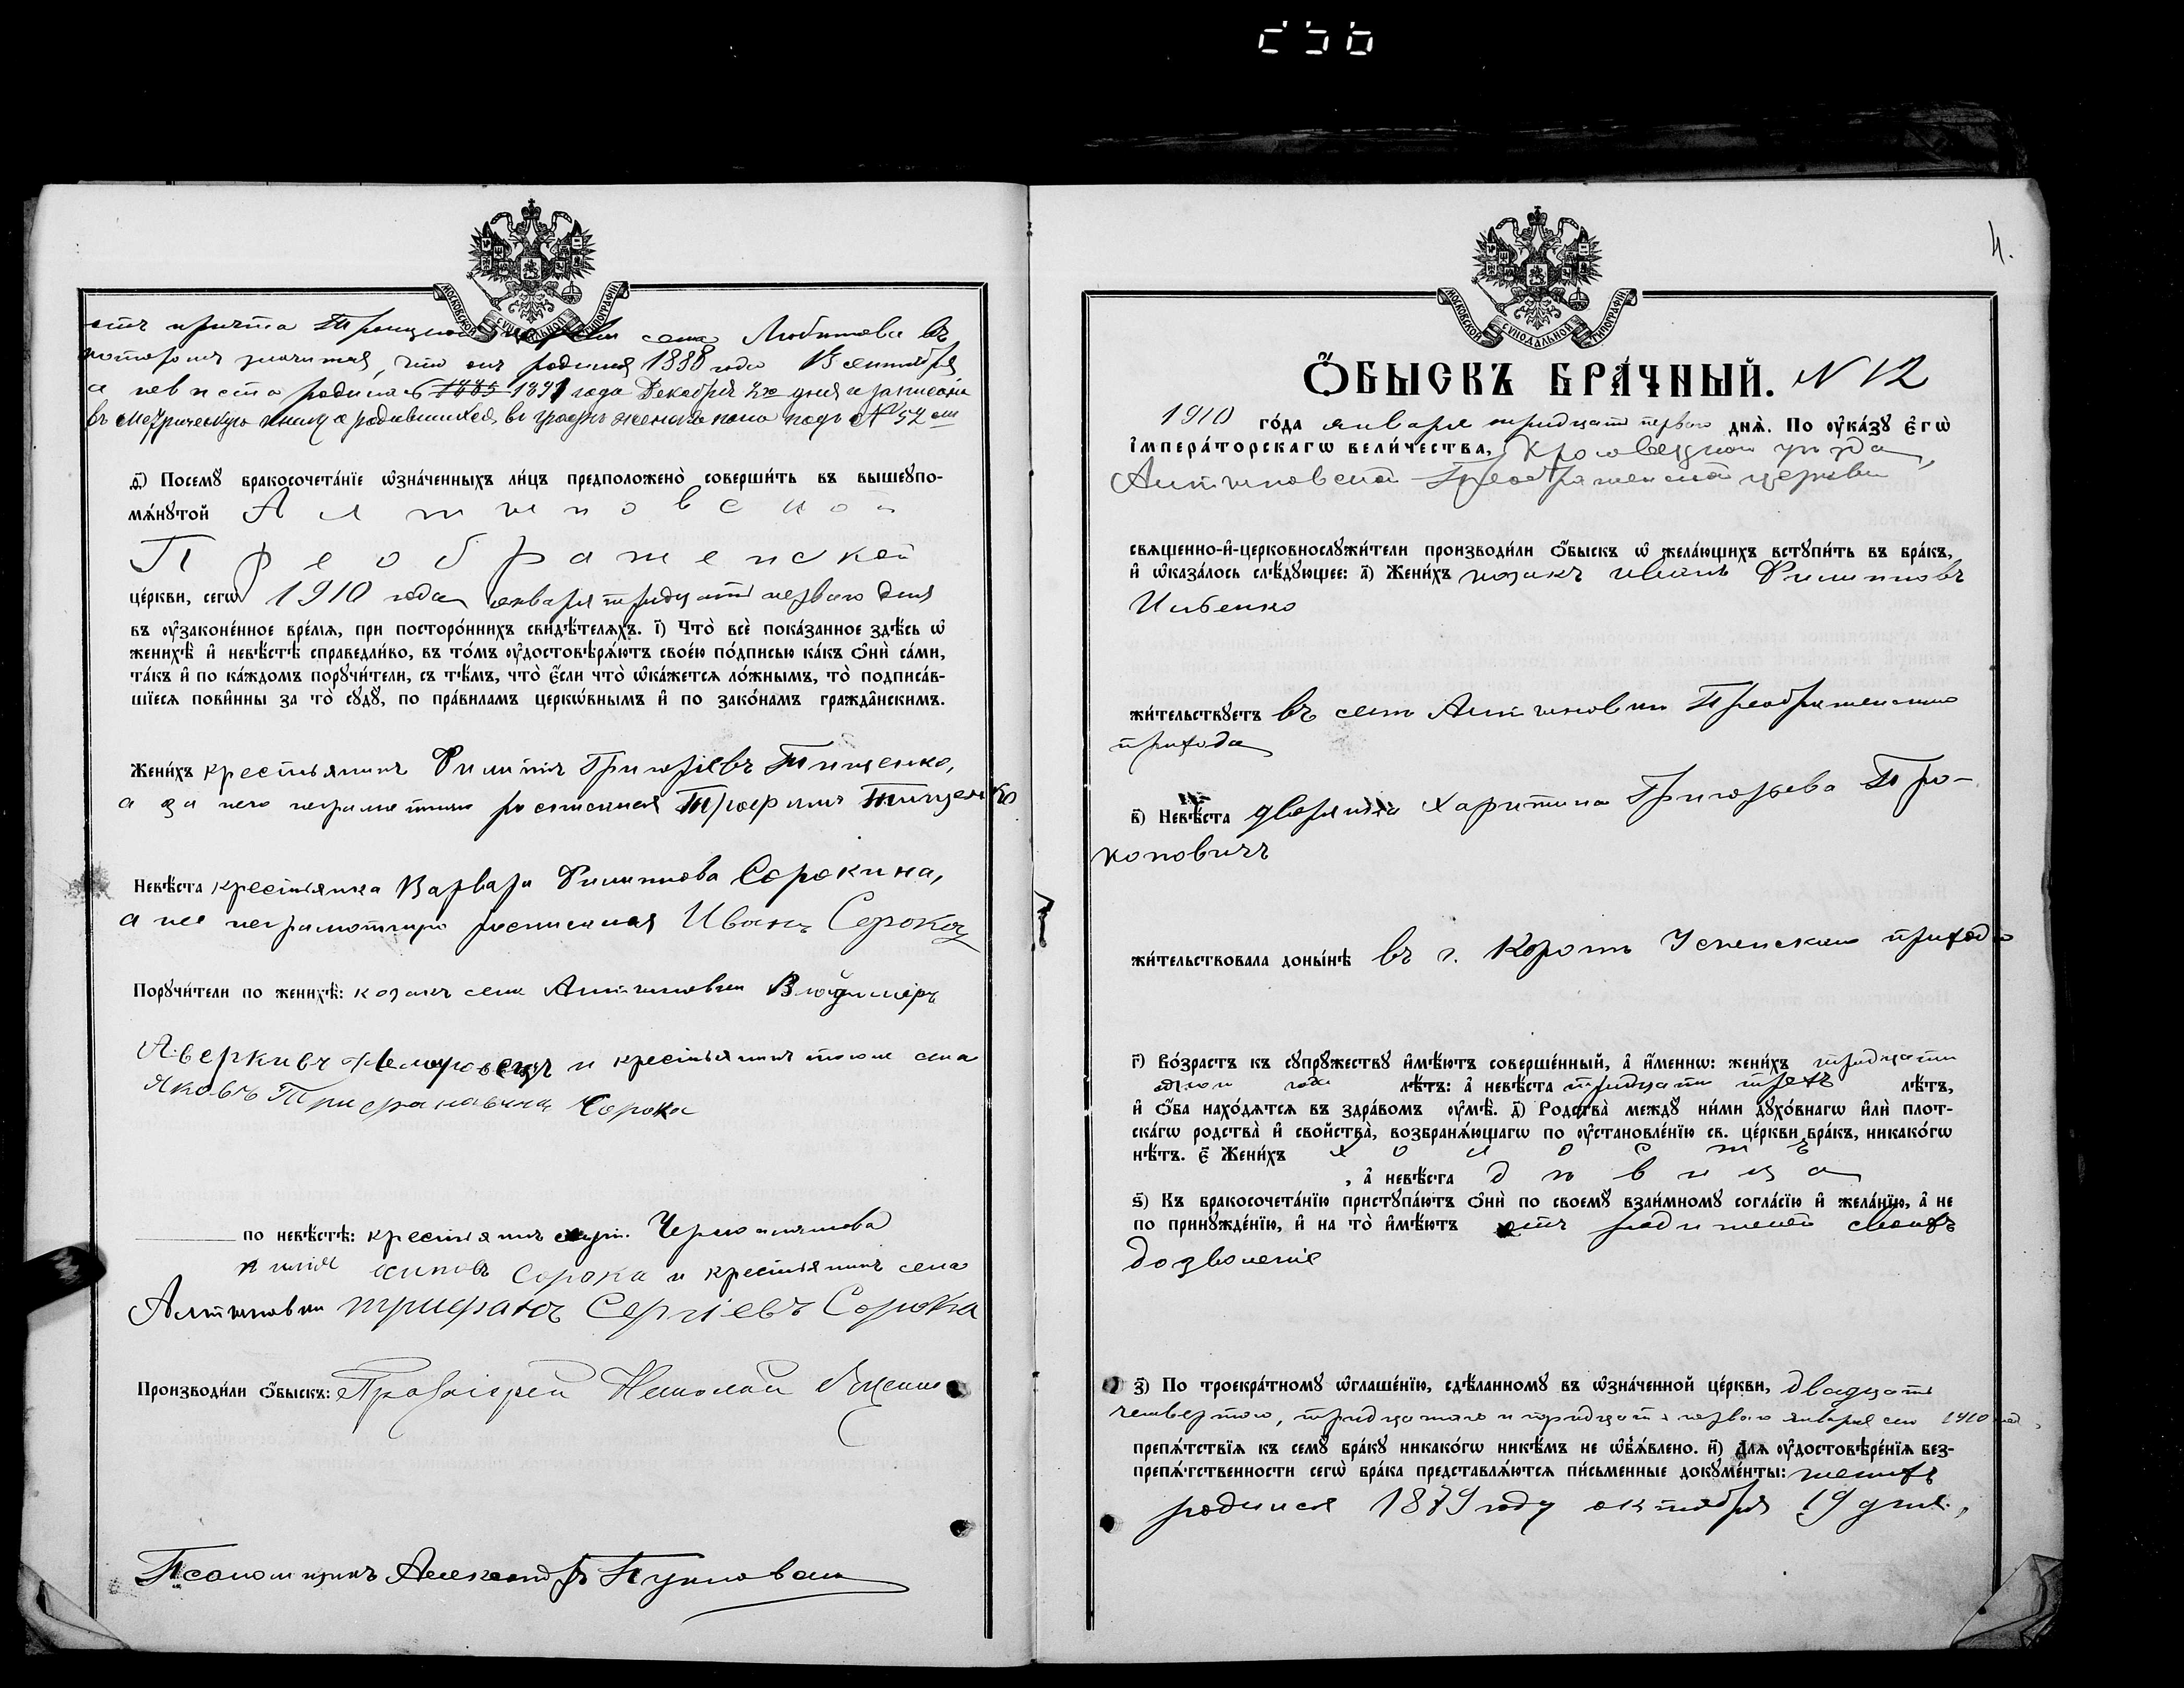 МОСКОВСКОЙ СѴНОДАЛЬНОЙ ТИПОГРАФІИ
отъ причта Троицкой церкви села Любитова въ
которомъ значится, что онъ родился 1888 года 13 сентября
а невѣста родилась 1885 1891 года Декабря 2го дня и записана
въ метрическую книгу о родившихся, въ графѣ женскаго пола подъ № 52 ом
д҃) Посемꙋ бракосочета́нїе ѡ҆зна́ченныхъ ли́цъ предположено̀ соверши́ть въ вышеꙋпо-
мѧ́нꙋтой Алтыновской
Преображенской
це́ркви, сегѡ̀ 1910 года января тридцать перваго дня
въ ᲂу҆законе́нное вре́мѧ, при посторо́ннихъ свидѣ́телѧхъ. і҃) Что̀ всѐ пока́занное здѣ́сь ѡ҆
женихѣ̀ и҆ невѣ́стѣ справедли́во, въ то́мъ ᲂу҆достовѣрѧ́ютъ свое́ю по́дписью ка́къ ѻ҆нѝ са́ми,
та́къ и҆ по ка́ждомъ порꙋчи́тели, съ тѣ́мъ, что̀ є҆́сли что̀ ѡ҆ка́жетсѧ ло́жнымъ, то̀ подписа́в-
шїесѧ пови́нны за то̀ сꙋдꙋ̀, по пра́виламъ церкѡ́внымъ и҆ по зако́намъ гражда̑нскимъ.
Жени́хъ крестьянинъ Филиппъ Григоріевъ Тищенко,
а за него неграмотнаго росписался Трофимъ Тищенко
Невѣ́ста крестьянка Варвара Филиппова Сорокина,
а нее неграмотную росписался Иванъ Сорока
Порꙋчи́тели по женихѣ̀: козакъ села Алтыновки Владиміръ
Аверкивъ и крестьянинъ того же села
Яковъ Трифановичъ Сорока
по невѣ́стѣ: крестьянинъ
Сорока и крестьянинъ села
Алтыновки трифанъ Сергіевъ Сорока
Производи́ли ѻ҆́быскъ: Протоіерей Николай
Псаломщикъ Александръ
4.
МОСКОВСКОЙ СѴНОДАЛЬНОЙ ТИПОГРАФІИ
Ѻ҆́БЫСКЪ БРА́ЧНЫЙ. N 12
1910 го́да января тридцать перваго днѧ̀. По ᲂу҆ка́зꙋ є҆гѡ̀
і҆мпера́торскагѡ вели́чества, Кролевецкаго уѣзда,
Алтыновской Преображенской церкви
свѧщенно-и҆-церковнослꙋжи́тели производи́ли ѻ҆́быскъ ѡ҆ жела́ющихъ встꙋпи́ть въ бра́къ,
и҆ ѡ҆каза́лось слѣ́дꙋющее: а҃) Жени́хъ козакъ Иванъ Филипповъ
Ильенко
жи́тельствꙋетъ въ селѣ Алтыновкѣ Преображенскаго
прихода
в҃) Невѣ́ста дворянка Харитина Григорьева Про-
коповичъ
жи́тельствовала доны́нѣ въ г. Коропѣ Успенскаго прихода
г҃) Во́зрастъ къ сꙋпрꙋ́жествꙋ и҆мѣ́ютъ соверше́нный, а҆ и҆́меннѡ: жени́хъ тридцати
лѣ́тъ: а҆ невѣ́ста тридцати трехъ лѣ́тъ,
и҆ ѻ҆́ба нахо́дѧтсѧ въ здра́вомъ ᲂу҆мѣ̀. д҃) Родства̀ междꙋ̀ ни́ми дꙋхо́внагѡ и҆лѝ плот-
ска́гѡ родства̀ и҆ свойства̀, возбранѧ́ющагѡ по ᲂу҆становле́нїю св. це́ркви бра́къ, никако́гѡ
нѣ́тъ. є҃) Жени́хъ холостъ
, а҆ невѣ́ста дѣвица
ѕ҃) Къ бракосочета́нїю пристꙋпа́ютъ ѻ҆нѝ по своемꙋ̀ взаи́мномꙋ согла́сїю и҆ жела́нїю, а҆ не
по принꙋжде́нїю, и҆ на то̀ и҆мѣ́ютъ отъ родителей своихъ
дозволеніе
з҃) По троекра́тномꙋ ѡ҆глаше́нїю, сдѣ́ланномꙋ въ ѡ҆зна́ченной це́ркви, двадцать
четвертаго, тридцатаго и тридцать перваго января сего 1910 года,
препѧ́тствїѧ къ семꙋ̀ бра́кꙋ никако́гѡ никѣ́мъ не ѡ҆б̾ѧ́влено. и҃) Длѧ ᲂу҆достовѣре́нїѧ без-
препѧ́тственности сегѡ̀ бра́ка представлѧ́ютсѧ пи́сьменные докꙋме́нты: женихъ
родился 1879 году октября 19 дня,